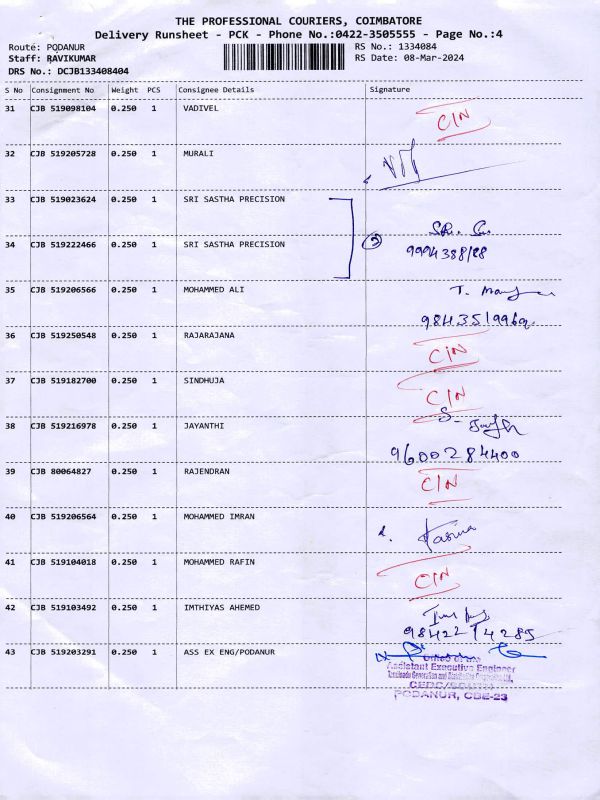 THE PROFESSIONAL COURIERS, COIMBATORE
Delivery Runsheet - PCK - Phone No.:0422-3505555 - Page No.:4
Route: PODANUR RS No.: 1334084
Staff: RAVIKUMAR RS Date: 08-Mar-2024
DRS No.: DCJB133408404
S No Consignment No Weight PCS Consignee Details Signature
31 CJB 519098104 0.250 1 VADIVEL C/N
32 CJB 519205728 0.250 1 MURALI
33 CJB 519023624 0.250 1 SRI SASTHA PRECISION
34 CJB 519222466 0.250 1 SRI SASTHA PRECISION
35 CJB 519206566 0.250 1 MOHAMMED ALI
9843519969
36 CJB 519250548 0.250 1 RAJARAJANA C/N
37 CJB 519182700 0.250 1 SINDHUJA C/N
38 CJB 519216978 0.250 1 JAYANTHI
9600284400
39 CJB 80064827 0.250 1 RAJENDRAN C/N
40 CJB 519206564 0.250 1 MOHAMMED IMRAN
41 CJB 519104018 0.250 1 MOHAMMED RAFIN C/N
42 CJB 519103492 0.250 1 IMTHIYAS AHEMED
9842214285
43 CJB 519203291 0.250 1 ASS EX ENG/PODANUR
Office of the
Assistant Executive Engineer
Tamilnadu Generation and Distribution Corporation Ltd.
CEDC/SOUTH
PODANUR, CBE-23